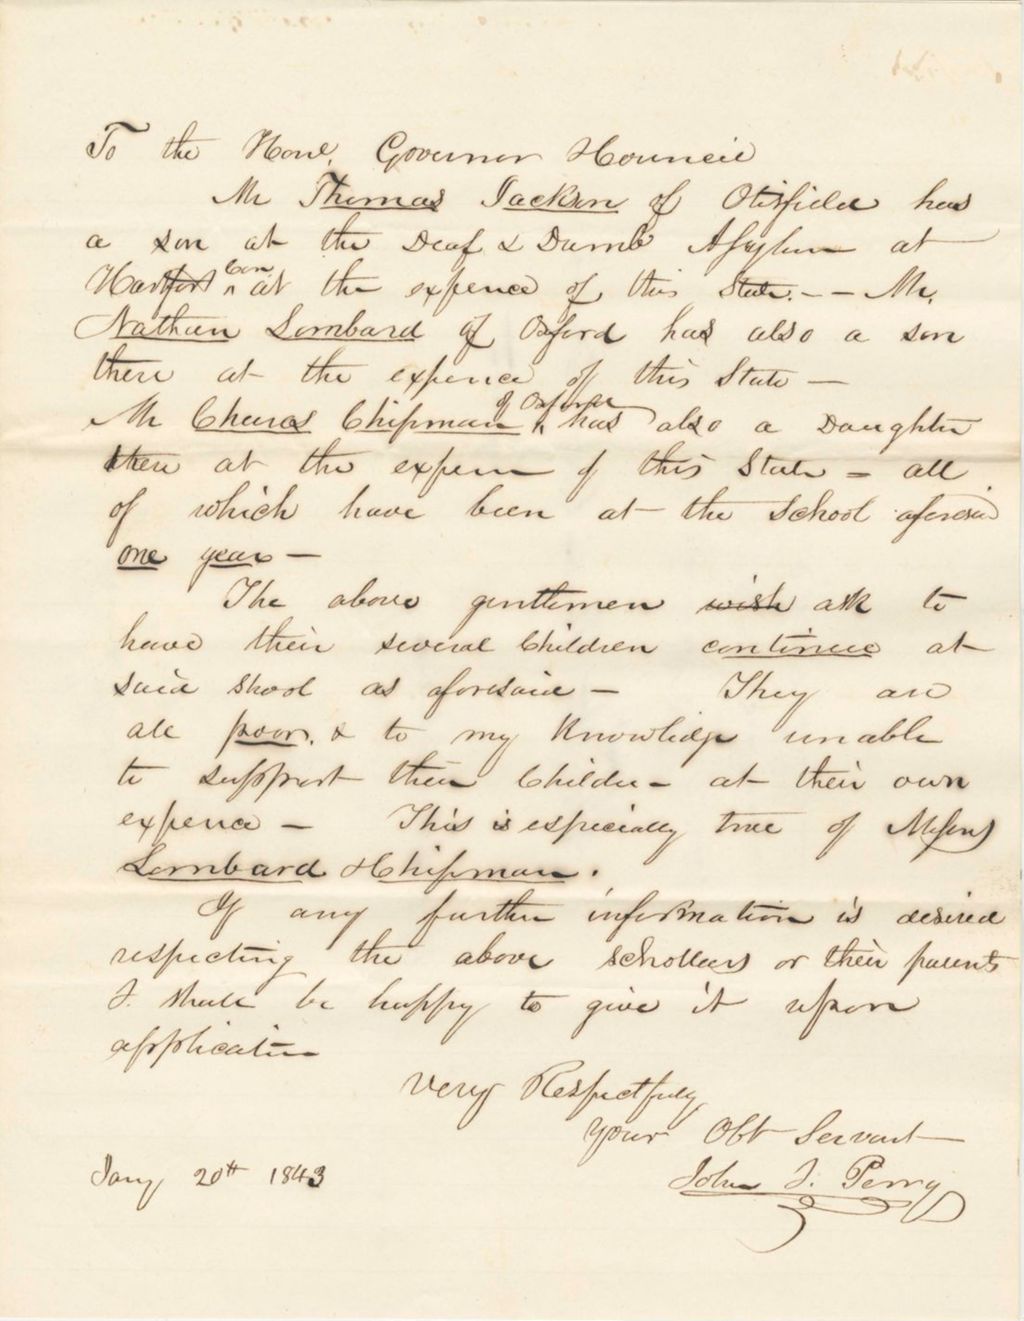 To the Honl. Governor & Council
Mr Thomas Jackson of Otisfield has
a son at the Deaf & Dumb Asylum at
Hartford Con at the expence of this State. — — Mr.
Nathan Lombard of Oxford has also a son
there at the expence of this State —
Mr Charles Chipman of Oxford has also a Daughter
there at the expence of this State — all
of which have been at the School aforesaid
one year —
The above gentlemen wish ask to
have their several Children continue at
said Shool as aforesaid — They are
all poor, & to my Knowledge unable
to support their Children at their own
expence — This is especially true of Messrs
Lombard & Chipman.
If any further information is desired
respecting the above schollars or their parents
I shall be happy to give it upon
application
Very Respectfuly
Your Obt Servant
John J. Perry
Jany 20th 1843